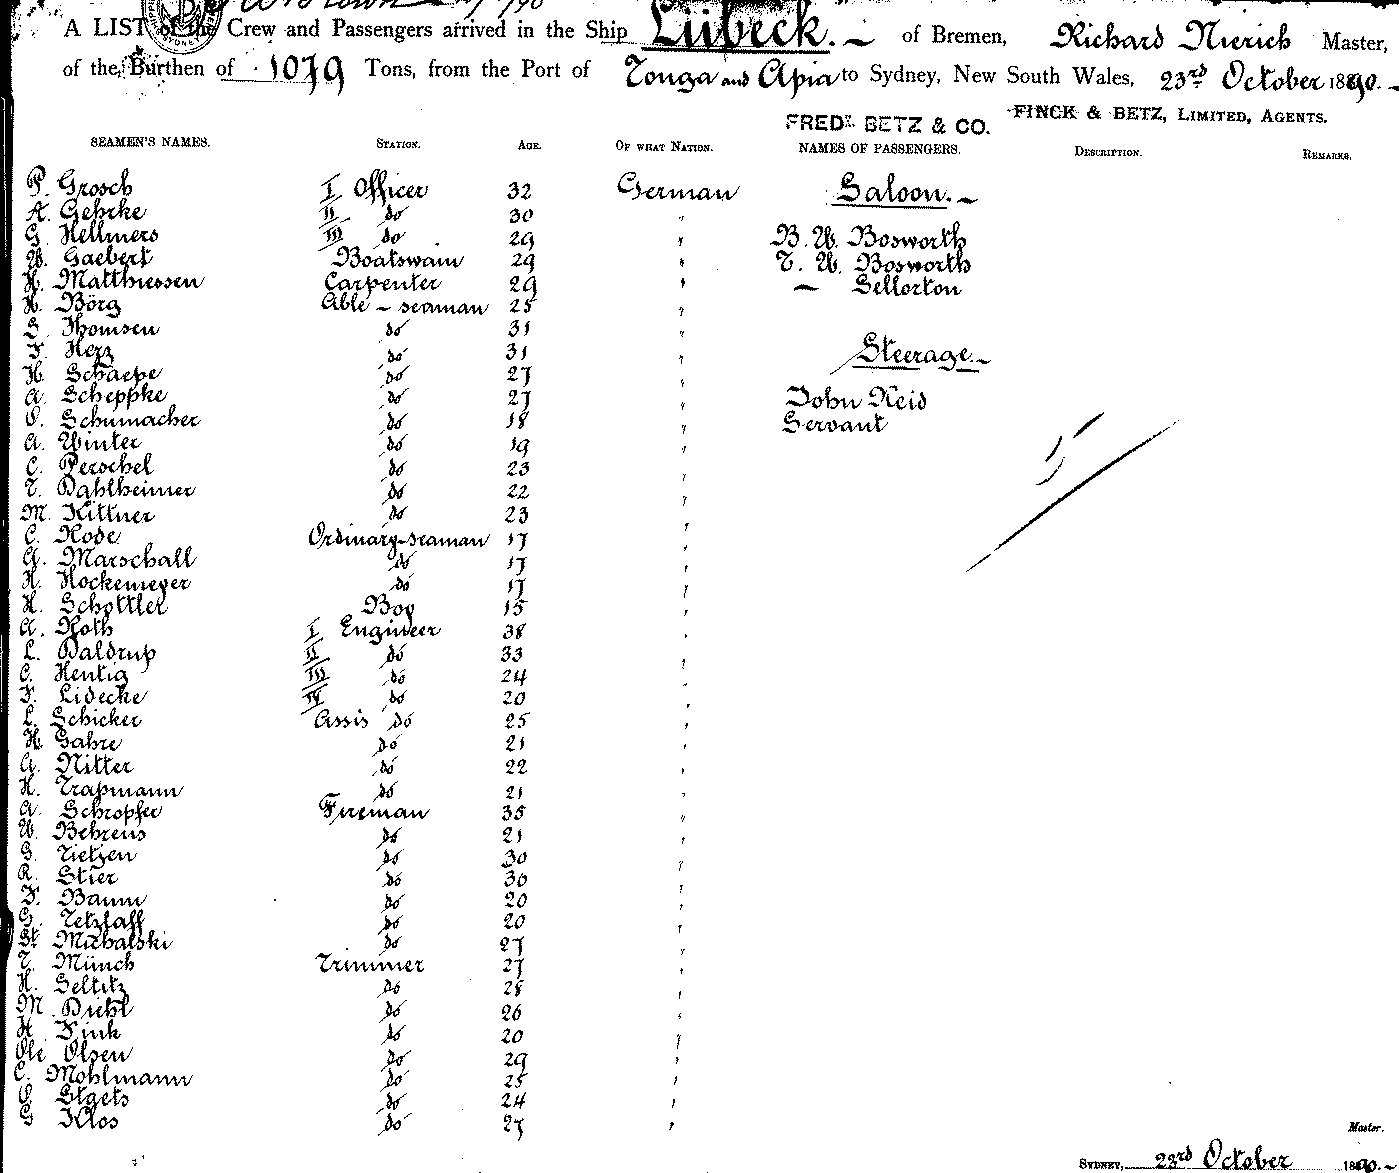 A LIST of the Crew and Passengers arrived in the Ship Lübeck. of Bremen, Richard Nierich Master,
of the Burthen of 1079 Tons, from the Port of Tonga and Apia to Sydney, New South Wales, 23rd October 1890.
FREDK. BETZ & CO. FINCK & BETZ, LIMITED, AGENTS.
SEAMEN'S NAMES. STATION. AGE. OF WHAT NATION. NAMES OF PASSENGERS. DESCRIPTION. REMARKS.
P. Grosch I Officer 32 German Saloon.
A. Gehrke II do 30 "
G. Hellmers III do 29 " B. W. Bosworth
W. Gaebert Boatswain 29 " T. W. Bosworth
H. Matthiessen Carpenter 29 " — Sellorton
H. Börg Able-seaman 25 "
S. Thomsen do 31 "
F. Herz do 31 " Steerage.
H. Schaepe do 27 "
A. Scheppke do 27 " John Reid
O. Schumacher do 18 " Servant
A. Winter do 19 "
C. Perschel do 23 " 5
T. Dahlheimer do 22 "
M. Kittner do 23 "
C. Rode Ordinary-seaman 17 "
G. Marschall do 17 "
H. Hockemeyer do 17 "
H. Schottler Boy 15 "
A. Roth I Engineer 38 "
L. Daldrup II do 33 "
C. Hentig III do 24 "
F. Lidecke IV do 20 "
L. Schicker Assis do 25 "
H. Gahre do 21 "
A. Nitter do 22 "
H. Trapmann do 21 "
A. Schropfer Fireman 35 "
W. Behrens do 21 "
G. Tietzen do 30 "
R. Stier do 30 "
F. Baum do 20 "
G. Tetzlaff do 20 "
St. Michalski do 27 "
T. Münch Trimmer 27 "
H. Seltitz do 28 "
M. Diehl do 26 "
H. Fink do 20 "
Ole Olsen do 29 "
C. Mohlmann do 25 "
O. Staets do 24 "
G Klos do 27 "
Master.
SYDNEY, 23rd October 1890.